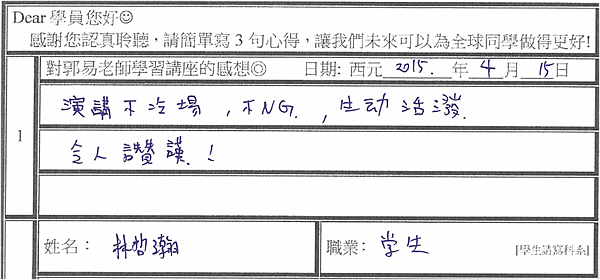 Dear 學員您好☺
感謝您認真聆聽，請簡單寫 3 句心得，讓我們未來可以為全球同學做得更好!
對郭易老師學習講座的感想◎ 日期: 西元 2015. 年 4 月 15 日
1
演講不冷場，不NG.，生动活潑.
令人讚嘆.！
姓名： 林哲瀚 職業： 学生 [學生請寫科系]